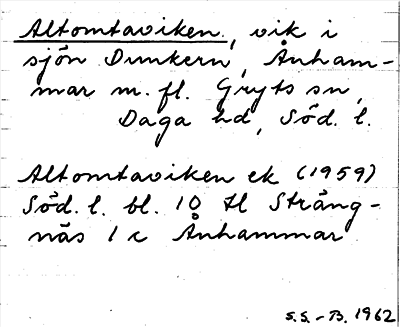 Altomtaviken, vik i
sjön Dunkern, Ånham-
mar m. fl. Gryts sn,
Daga hd, Söd. l.
Altomtaviken ek (1959)
Söd. l. bl. 10 tl Sträng-
näs 1 c Ånhammar
S.S.-B. 1962